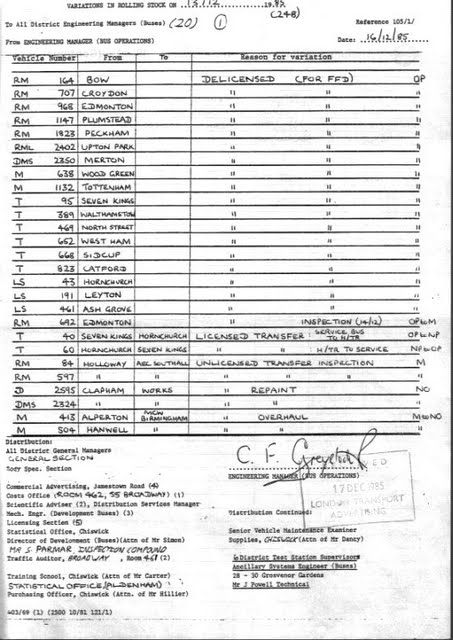 VARIATIONS IN ROLLING STOCK ON 13/12 1985
(248)
To All District Engineering Managers (Buses) (20) 1 Reference 103/1/
From ENGINEERING MANAGER (BUS OPERATIONS) Date: 16/12/85.
Vehicle Number From To Reason for variation
RM 164 BOW DELICENSED (FOR FFD) OP
RM 707 CROYDON " " "
RM 968 EDMONTON " " "
RM 1147 PLUMSTEAD " " "
RM 1823 PECKHAM " " "
RML 2402 UPTON PARK " " "
DMS 2350 MERTON " " "
M 638 WOOD GREEN " " "
M 1132 TOTTENHAM " " "
T 95 SEVEN KINGS " " "
T 389 WALTHAMSTOW " " "
T 469 NORTH STREET " " "
T 652 WEST HAM " " "
T 668 SIDCUP " " "
T 823 CATFORD " " "
LS 43 HORNCHURCH " " "
LS 191 LEYTON " " "
LS 461 ASH GROVE " " "
RM 692 EDMONTON " INSPECTION (14/12) OP to M
T 40 SEVEN KINGS HORNCHURCH LICENSED TRANSFER : SERVICE BUS TO H/TR OP to NP
T 60 HORNCHURCH SEVEN KINGS " " : H/TR TO SERVICE NP to OP
RM 84 HOLLOWAY AEC SOUTHALL UNLICENSED TRANSFER INSPECTION M
RM 597 " " " " " "
D 2595 CLAPHAM WORKS " REPAINT NO
DMS 2324 " " " " "
M 413 ALPERTON MCW BIRMINGHAM " OVERHAUL M to NO
M 504 HANWELL " " " "
Distribution:
All District General Managers
GENERAL SECTION
Body Spec. Section
ENGINEERING MANAGER (BUS OPERATIONS)
Commercial Advertising, Jamestown Road (4)
17 DEC 1985
Costs Office (ROOM 462, 55 BROADWAY) (1)
LONDON TRANSPORT
ADVERTISING
Scientific Adviser (2), Distribution Services Manager
Mech. Engr. (Development Buses) (3) Distribution Continued:
Licensing Section (5)
Statistical Office, Chiswick Senior Vehicle Maintenance Examiner
Director of Development (Buses)(Attn of Mr Simon) Supplies, CHISWICK (Attn of Mr Dancy)
MR S PARMAR INSPECTION COMPOUND
Traffic Auditor, BROADWAY , ROOM 467 (2) 6 District Test Station Supervisors
Ancillary Systems Engineer (Buses)
Training School, Chiswick (Attn of Mr Carter) 28 - 30 Grosvenor Gardens
STATISTICAL OFFICE (ALDENHAM) Mr J Powell Technical
Purchasing Officer, Chiswick (Attn. of Mr Hillier)
403/69 (1) (2500 10/81 121/1)